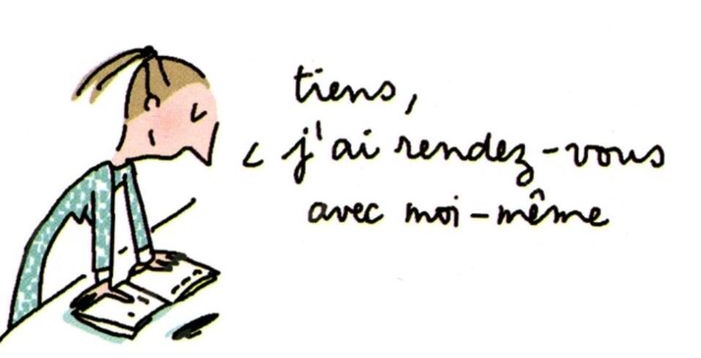 tiens,
j'ai rendez-vous
avec moi-même